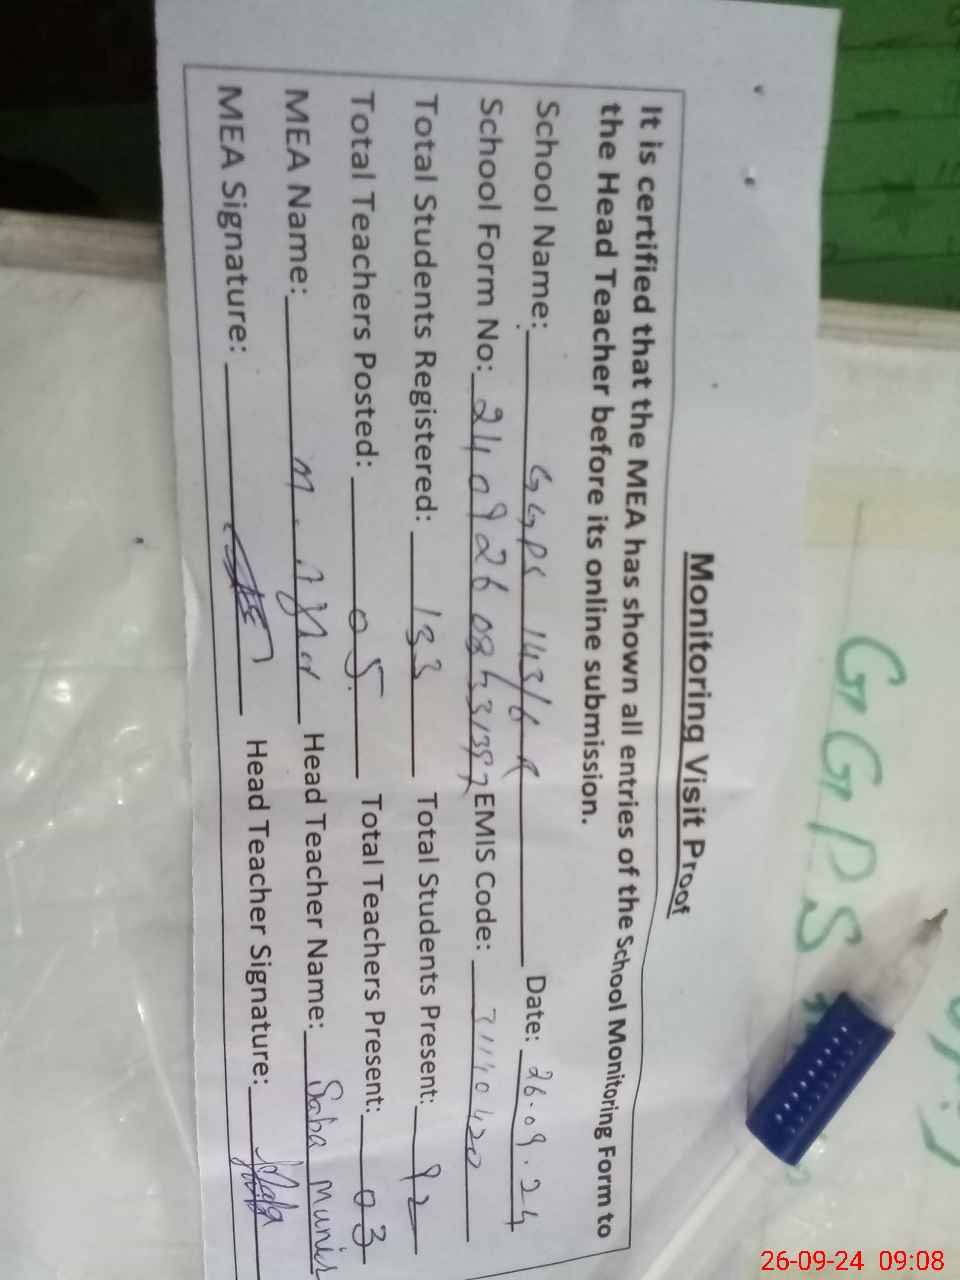 Monitoring Visit Proof
It is certified that the MEA has shown all entries of the School Monitoring Form to
the Head Teacher before its online submission.
School Name: GGPS 143/6 R Date: 26.09.24
School Form No: EMIS Code: 31140420
Total Students Registered: 133 Total Students Present: 92
Total Teachers Posted: 05 Total Teachers Present: 03
MEA Name: M. Head Teacher Name: Saba Munir
MEA Signature: Head Teacher Signature:
GGPS
26-09-24 09:08